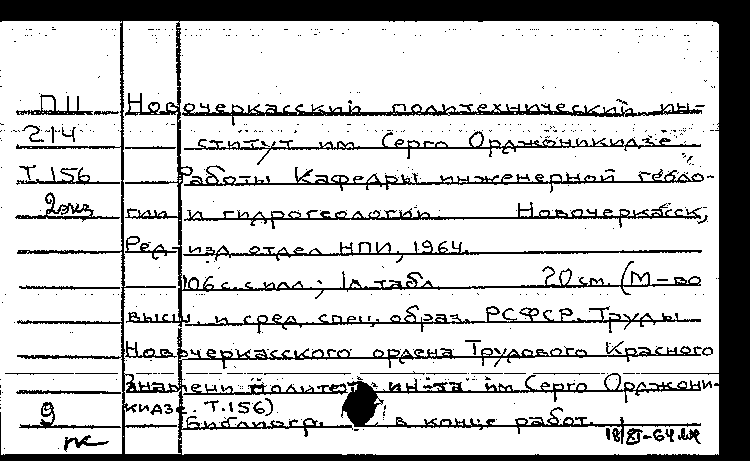 П11 Новочеркасский политехнический ин-
214 ститут им. Серго Орджоникидзе
Т.156 Работы Кафедры инженерной геоло-
2экз гии и гидрогеологии. Новочеркасск,
Ред-изд. отдел НПИ, 1964.
106 с. с илл.; 1 л. табл. 20 см. (М-во
высш. и сред. спец. образ. РСФСР. Труды
Новочеркасского ордена Трудового Красного
Знамени политехн. ин-та им Серго Орджони-
кидзе. Т.156)
9 Библиогр. в конце работ.